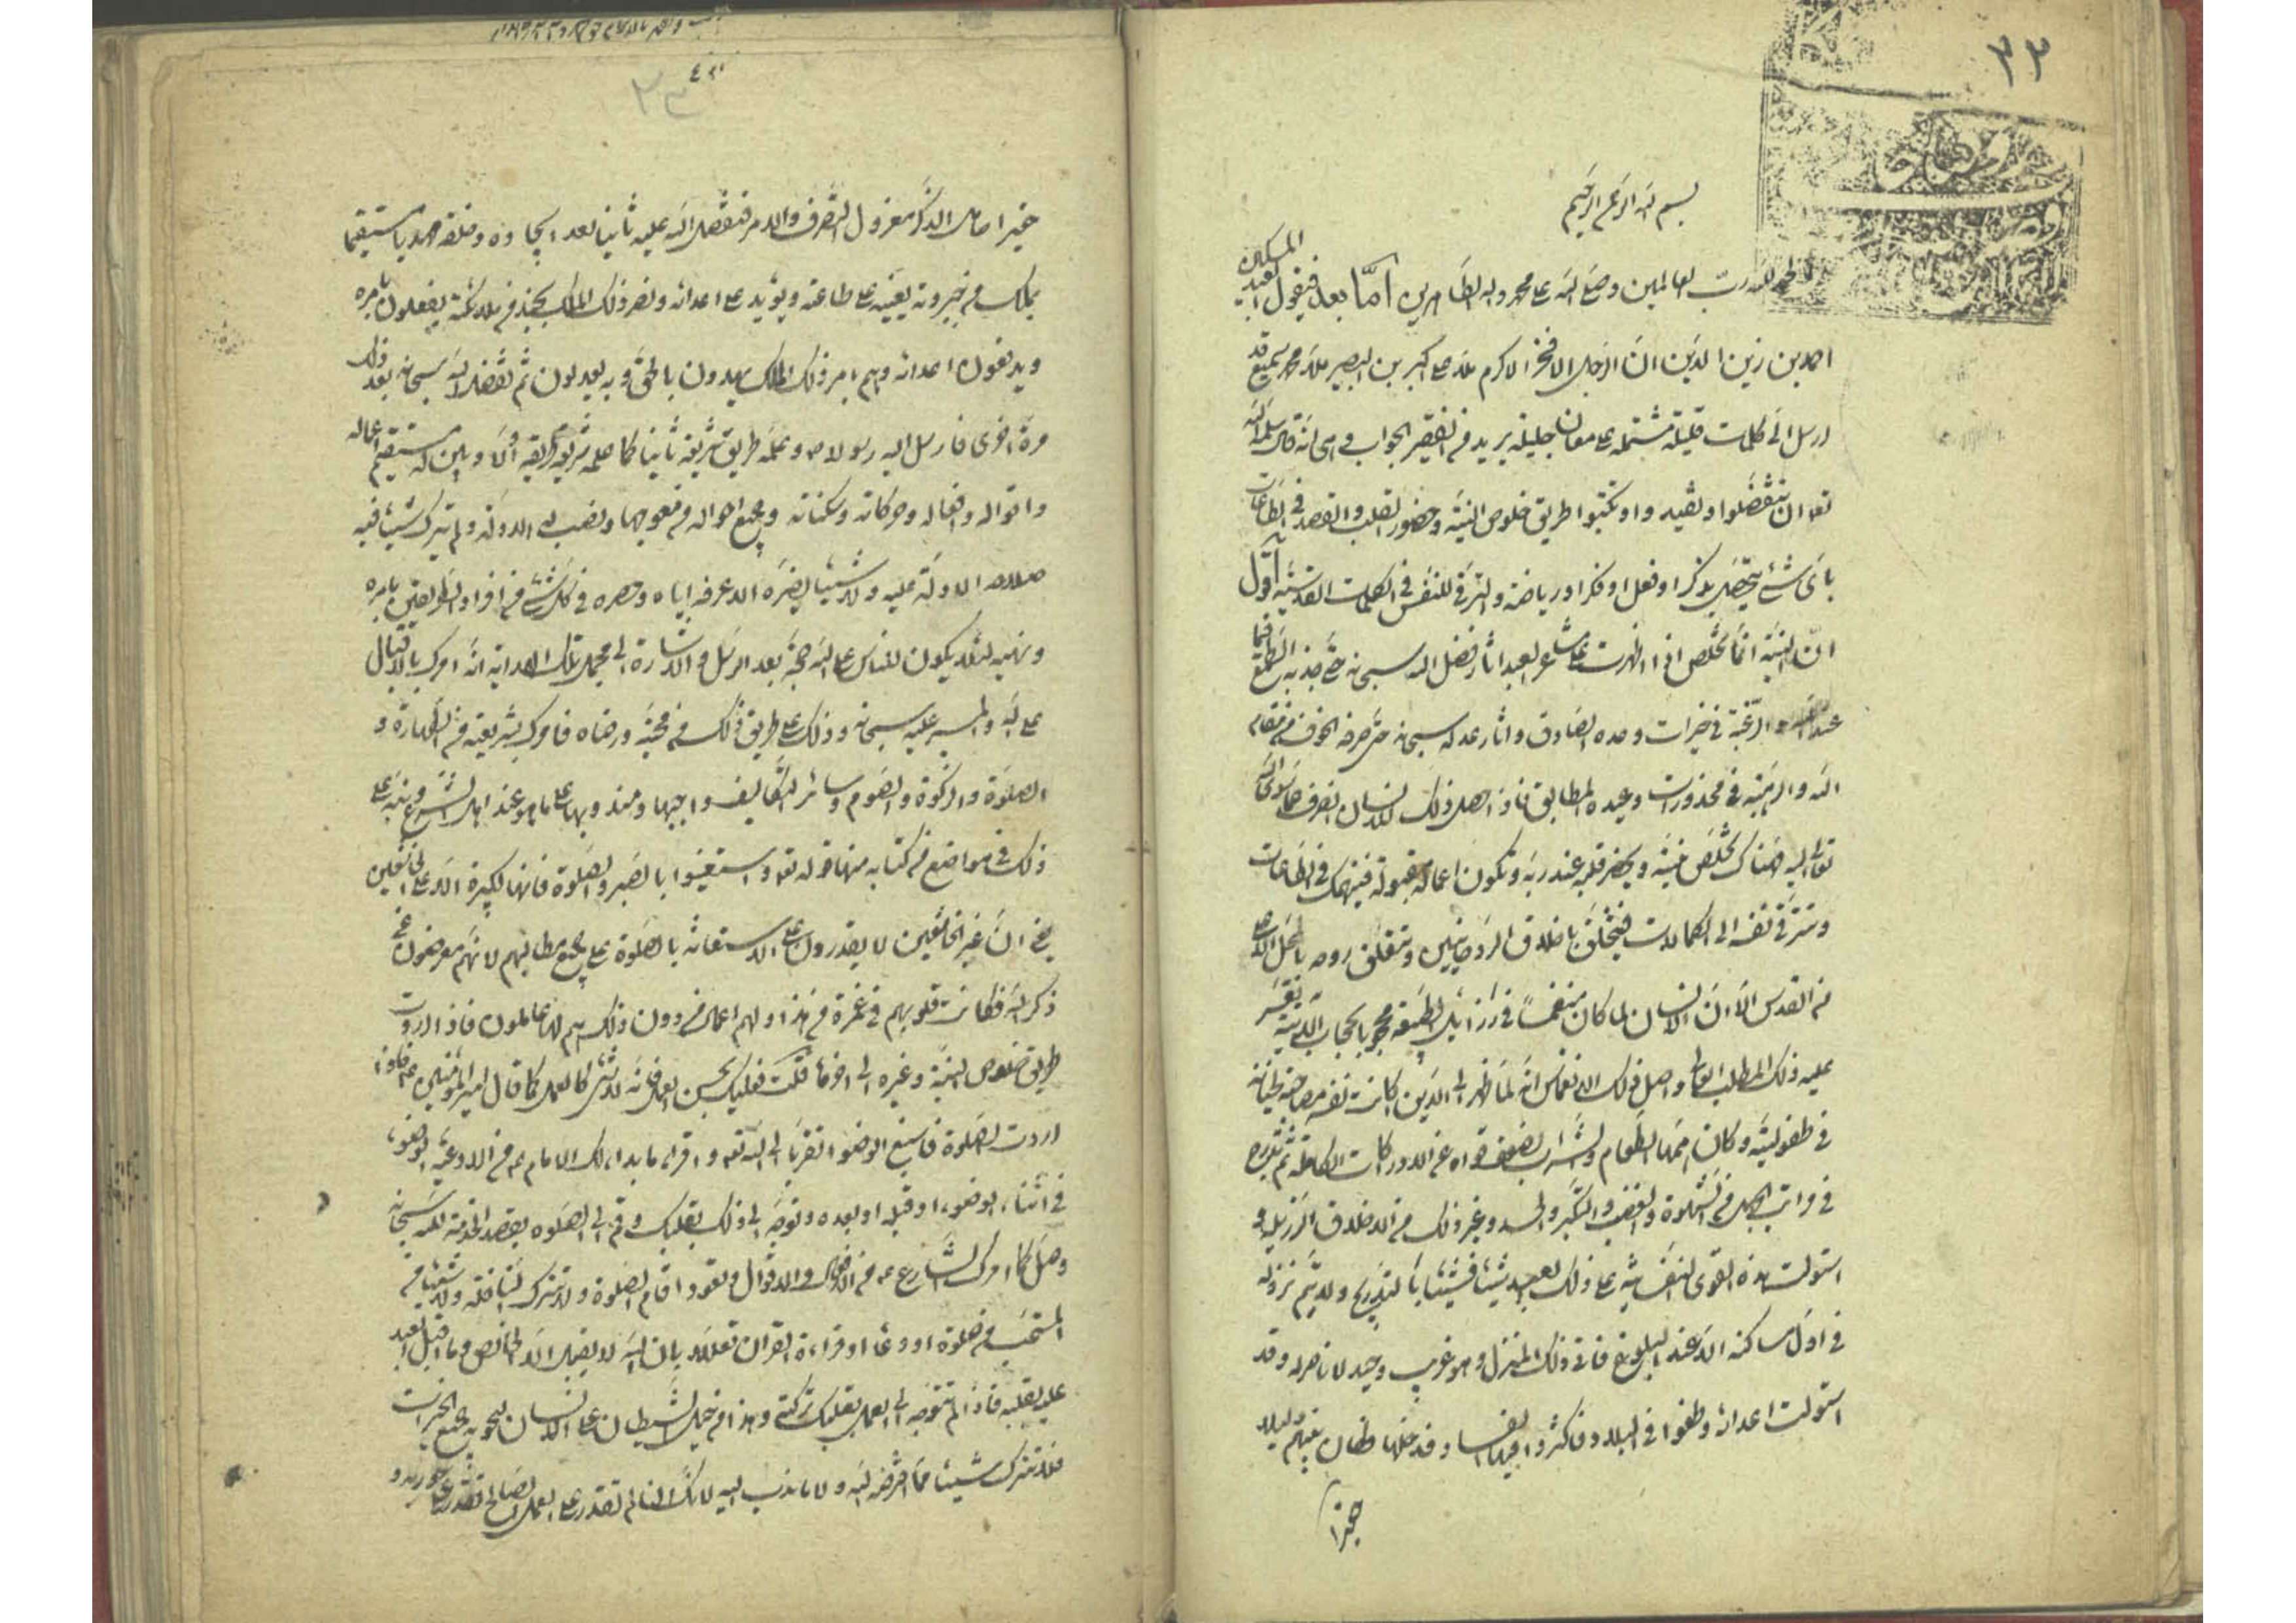 بسم الله الرحمن الرحيم
الحمد لله رب العالمين وصلى الله على محمد واله الطاهرين اما بعد فيقول العبد المسكين
احمد بن زين الدين ان الرجل الافخر الاكرم ملا على اكبر بن البصير ملا محمد سميع قد
ارسل الى كلمات قليلة مشتملة على معان جليلة يريد من الفقير الجواب وهى انه قال سلمه الله
تعا ان تتفضلوا وتكتبوا طريق خلوص النية وحضور القلب والقصد فى الطاعات
باى شئ يتحصل بذكر او فعل او فكر او رياضة والترقى للنفس فى الكلمات القدسية اقول
ان النية انما تخلص اذا ظهرت على مشاعر العبد اثار فضل الله سبحانه حتى جذبه الطمع فيما
عند الله والرغبة فى خيرات وعده الصادق واثار عدله سبحانه حتى صرفه الخوف من مقام
الله والرهبة فى محذورات وعيده المطابق فاذا حصل ذلك للانسان انصرف عما سوى الله
تعالى اليه فهناك تخلص نيته ويحضر قلبه عند ربه وتكون اعماله مقبولة فينهمك فى الطاعات
وتترقى نفسه الى الكمالات فيتخلق باخلاق الروحانيين وتتعلق روحه بالمحل الاعلى
من القدس الا ان الانسان لما كان منغمسا فى رزائل الطبيعة محجوبا بحجاب الانية تعسر
عليه ذلك المطلب العالى واصل ذلك الانغماس انه لما ظهر الى الدنيا كانت نفسه
فى طفوليته وكان همها الطعام والشراب لضعف قواه عن الادراكات الكاملة ثم تدرج
فى مراتب الجهل من الشهوة والغضب والتكبر والحسد وغير ذلك من الاخلاق الرزيلة و
استولت هذه القوى النفسانية على ذلك العبد شيئا فشيئا بالتدريج ولم يتم نزوله
فى اول مساكنه الا عند البلوغ فاتى ذلك المنزل وهو غريب وحيد لا ناصر له وقد
استولت اعدائه وطغوا فى البلاد فاكثروا فيها الفساد وقد خلها فكان بينهم ليلا
حقيرا
حقيرا خامل الذكر معزول التصرف والامر فتفضل الله عليه ثانيا بعد ايجاده وخلقه مهديا مستقيما
بملك من جبروته يعينه على طاعته ويؤيده على اعدائه ونصر ذلك الملك بجند من ملائكة يفعلون بامره
ويدفعون اعدائه وهم بامر ذلك الملك يهدون بالحق وبه يعدلون ثم تفضل الله سبحانه بعد ذلك
مرة اخرى فارسل اليه رسولا وعلمه طريق شريعته ثانيا كما علمه شريعة طريقته اولا وبين له مستقيم اعماله
واقواله وافعاله وحركاته وسكناته وجميع احواله من معوجها ونصب له الادلة ولم يترك شيئا فيه
صلاحه الا دله عليه ولا شيئا يضره الا عرفه اياه وحصره فى كل شئ من افراد الطريقين بامره
ونهيه لئلا يكون للناس على الله حجة بعد الرسل والاشارة الى مجمل تلك الهداية انه امرك بالاقبال
على الله والمسير اليه سبحانه وذلك على طريق ذلك من محبته ورضاه فامرك بشريعته من الطهارة و
الصلوة والزكوة والصوم وسائر التكاليف واجبها ومندوبها على ما هو عند اهل الشرع ونبه على
ذلك فى مواضع من كتابه منها قوله تعا واستعينوا بالصبر والصلوة فانها لكبيرة الا على الخاشعين
يعنى ان غير الخاشعين لا يقدرون على الاستعانة بالصلوة على جميع مطالبهم لانهم معرضون عن
ذكر الله فكانت قلوبهم فى غمرة من هذا ولهم اعمال من دون ذلك هم لها عاملون فاذا اردت
طريق خلوص النية وغيره الى اخر ما قلت فعليك بحسن العمل فانه لا شئ كالعمل كما قال امير المؤمنين ع فاذا
اردت الصلوة فاسبغ الوضوء تقربا الى الله تعا واقرا ما بدا لك الامام ع من الادعية الوضوء
فى اثناء الوضوء او قبله او بعده وتوجه الى ذلك بقلبك وقم الى الصلوة بقصد الخدمة لله سبحانه
وصل كما امرك الشارع ع من الافعال والاقوال وتعود اقام الصلوة ولا تترك النافلة ولا شيئا من
المستحب من صلوة او دعاء او قراءة القران تعللا بان الله لا يقبل الا الخالص وما اقبل العبد
عليه بقلبه فاذا لم تتوجه الى العمل بقلبك تركته وهذا من حيل الشيطان على الانسان ليحوبه جميع الخيرات
فلا تترك شيئا مما افترضه الله ولا ما ندب اليه لانك اذا لم تقدر على العمل الصالح فتقدر على صورته و